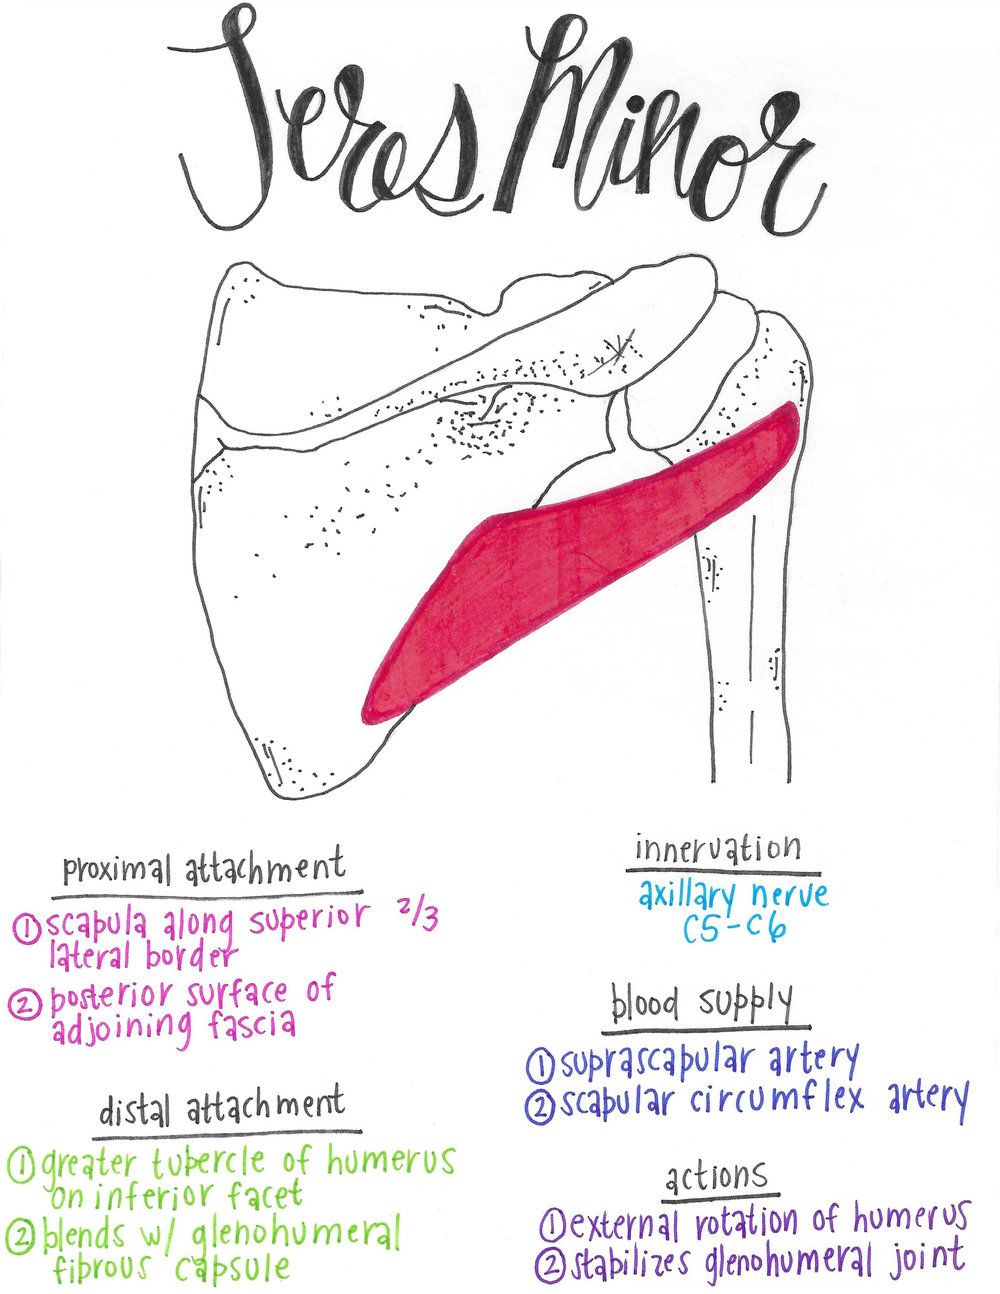 Teres Minor
proximal attachment
① scapula along superior 2/3
lateral border
② posterior surface of
adjoining fascia
distal attachment
① greater tubercle of humerus
on inferior facet
② blends w/ glenohumeral
fibrous capsule
innervation
axillary nerve
C5-C6
blood supply
① suprascapular artery
② scapular circumflex artery
actions
① external rotation of humerus
② stabilizes glenohumeral joint